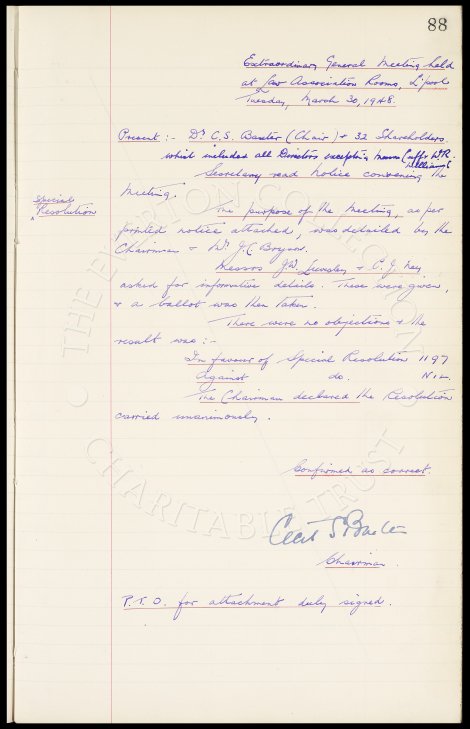 88
Extraordinary General Meeting held
at Law Association Rooms, L'pool
on Tuesday, March 30, 1948.
Present :- Dr C.S. Baxter (Chair) & 32 Shareholders
which included all Directors excepting Messrs Cuff & W.R. Williams
Secretary read Notice convening the
Meeting.
Special
Resolution
The purpose of the Meeting, as per
printed notice attached, was detailed by the
Chairman & Mr J.C. Bryson.
Messrs J.W. & C.J. Nay,
asked for informative details. These were given,
& a ballot was then taken.
There were no objections & the
result was :-
In favour of Special Resolution 1197
Against do. Nil
The Chairman declared the Resolution
carried unanimously.
Confirmed as correct.
Cecil S Baxter
Chairman.
P.T.O. for attachment duly signed.
THE EVERTON COLLECTION
CHARITABLE TRUST